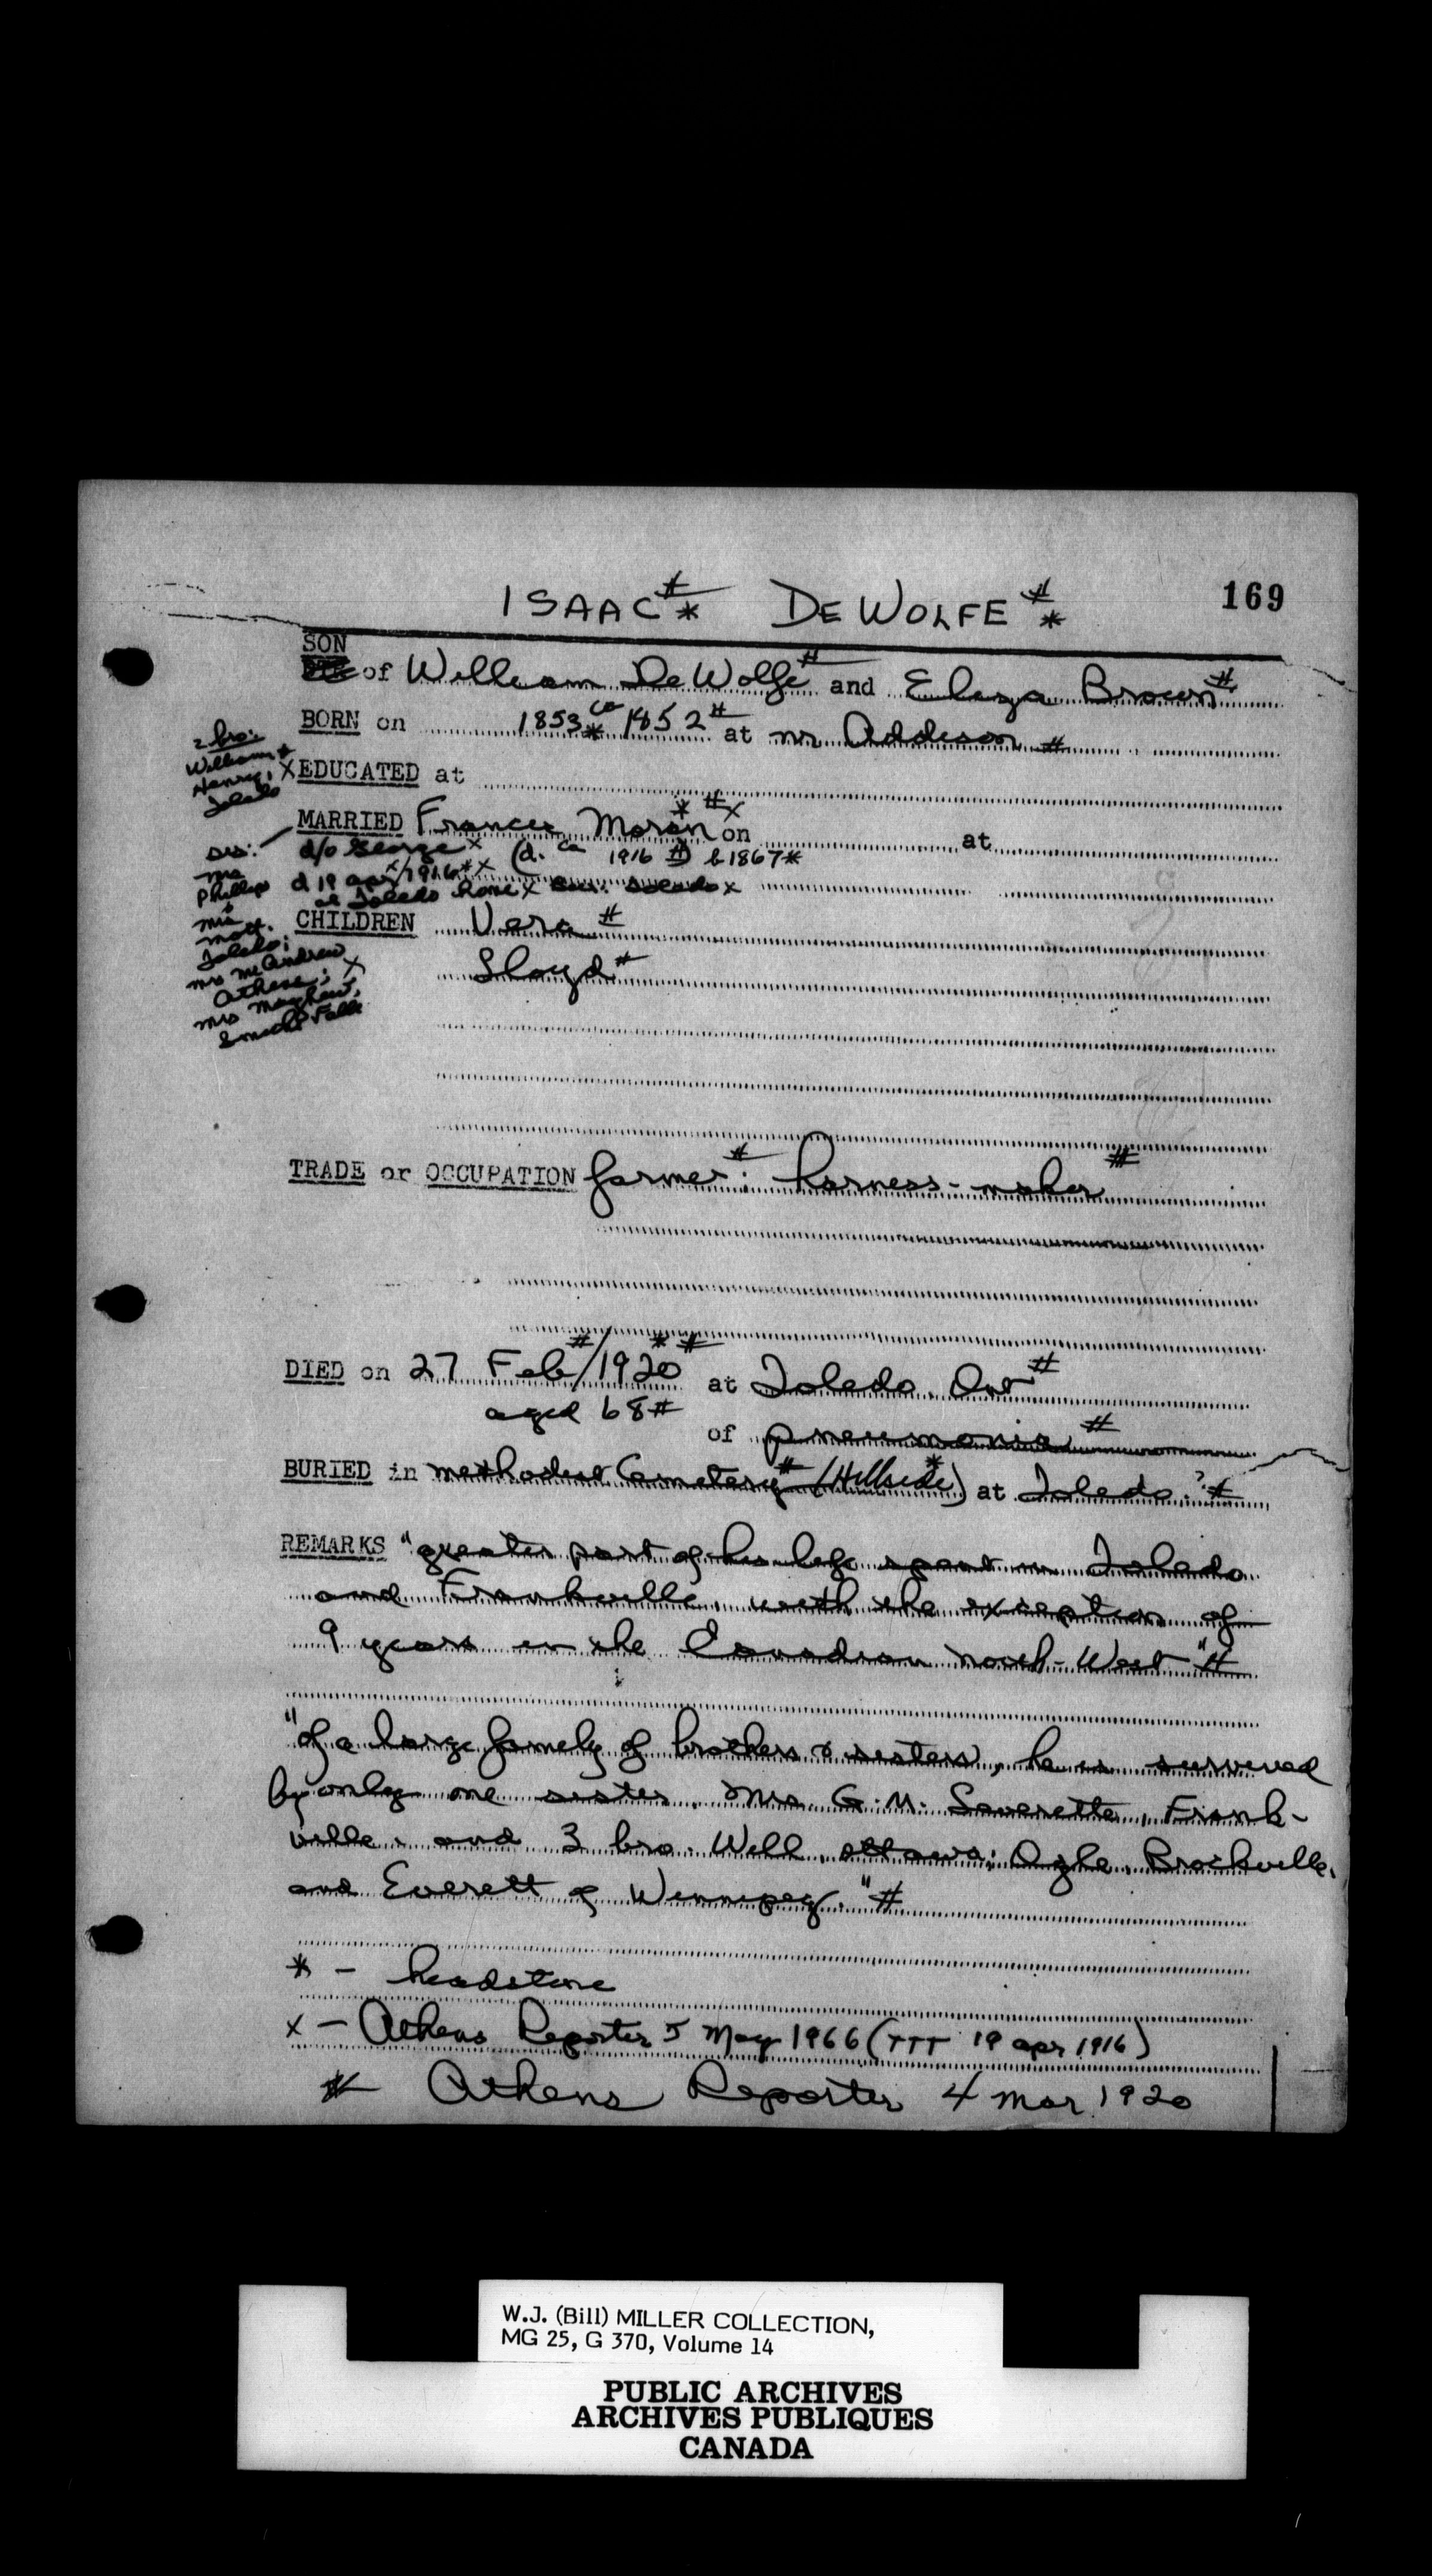 169
ISAAC #* DE WOLFE #*
SON
of William DeWolfe # and Eliza Brown #
BORN on 1853 * ca 1852 # at nr Addison #
2 bro:
William &
Henry,
Toledo
X EDUCATED at
MARRIED Frances Moran * # x on at
d/o George x (d. ca 1916 #) b 1867 *
d 19 apr x/1916 * x
at Toledo home x bur. Toledo x
sis:
Mrs
Phillips
&
Mrs
Mott.
Toledo;
Mrs McAndrew
Athens; X
Mrs Mayhew,
Smiths Falls
CHILDREN Vera #
Lloyd #
TRADE or OCCUPATION farmer #; harness-maker #
DIED on 27 Feb #/1920 * # at Toledo, Ont #
aged 68 #
of pneumonia #
BURIED in Methodist Cemetery # (Hillside *) at Toledo." #
REMARKS "greater part of his life spent in Toledo
and Frankville, with the exception of
9 years in the Canadian North-West" #
"of a large family of brothers & sisters, he is survived
by only one sister, Mrs. G. M. Leverette, Frank-
ville, and 3 bro. Will, Ottawa; Ogle, Brockville,
and Everett of Winnipeg." #
* - headstone
x - Athens Reporter 5 May 1966 (TTT 19 apr 1916)
# Athens Reporter 4 Mar 1920
W.J. (Bill) MILLER COLLECTION,
MG 25, G 370, Volume 14
PUBLIC ARCHIVES
ARCHIVES PUBLIQUES
CANADA